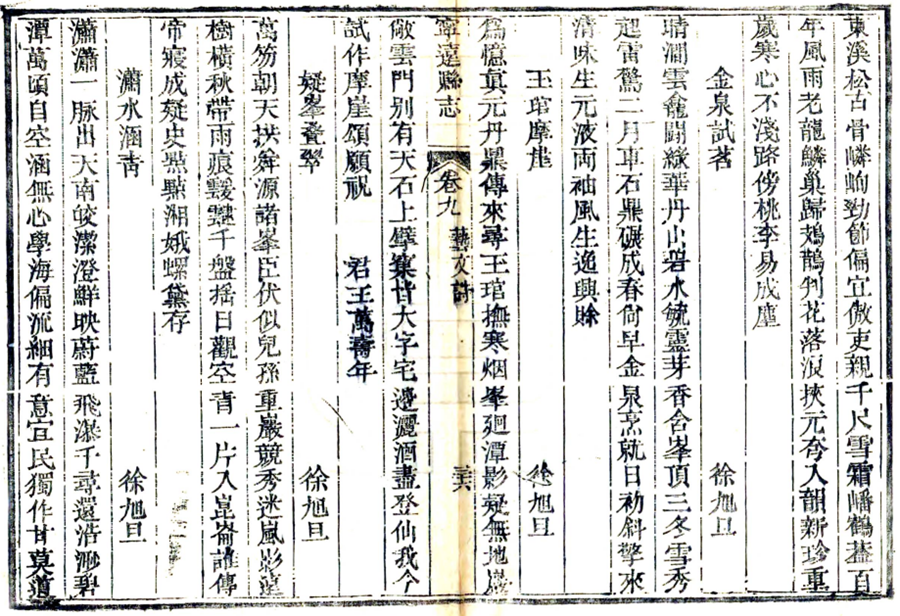 東溪松古骨嶙峋勁節偏宜傲吏親千尺雪霜皤鶴蓋百
年風雨老龍鱗巢歸鳷鵲判花落浪挾元夸入韻新珍重
歲寒心不淺路傍桃李易成塵
金泉試茗 徐旭旦
晴澗雲龕闢綠華丹山碧水毓靈芽香含峯頂三冬雪秀
起雷驚二月車石鼎碾成春尙早金泉烹就日初斜擎來
清味生元液両袖風生逸興賖
玉琯摩崖 徐旭旦
爲憶眞元丹鼎傳來尋玉琯撫寒烟峯廻潭影疑無地巖
寧遠縣志 卷九 藝文詩
敞雲門別有天石上擘窠皆大字宅邊灑酒盡登仙我今
試作摩崖頌願祝 君王萬壽年
疑峯叠翠 徐旭旦
萬笏朝天拱舜源諸峯臣伏似兒孫重巖競秀迷嵐影遠
樹橫秋帶雨痕靉靆千盤搖日觀空青一片入崑崙誰傳
帝寢成疑史㸃㸃湘娥螺黛存
瀟水涵青 徐旭旦
瀟瀟一脉出天南皎潔澄鮮映蔚藍飛瀑千尋還浩渺碧
潭萬頃自空涵無心學海偏流細有意宜民獨作甘莫道